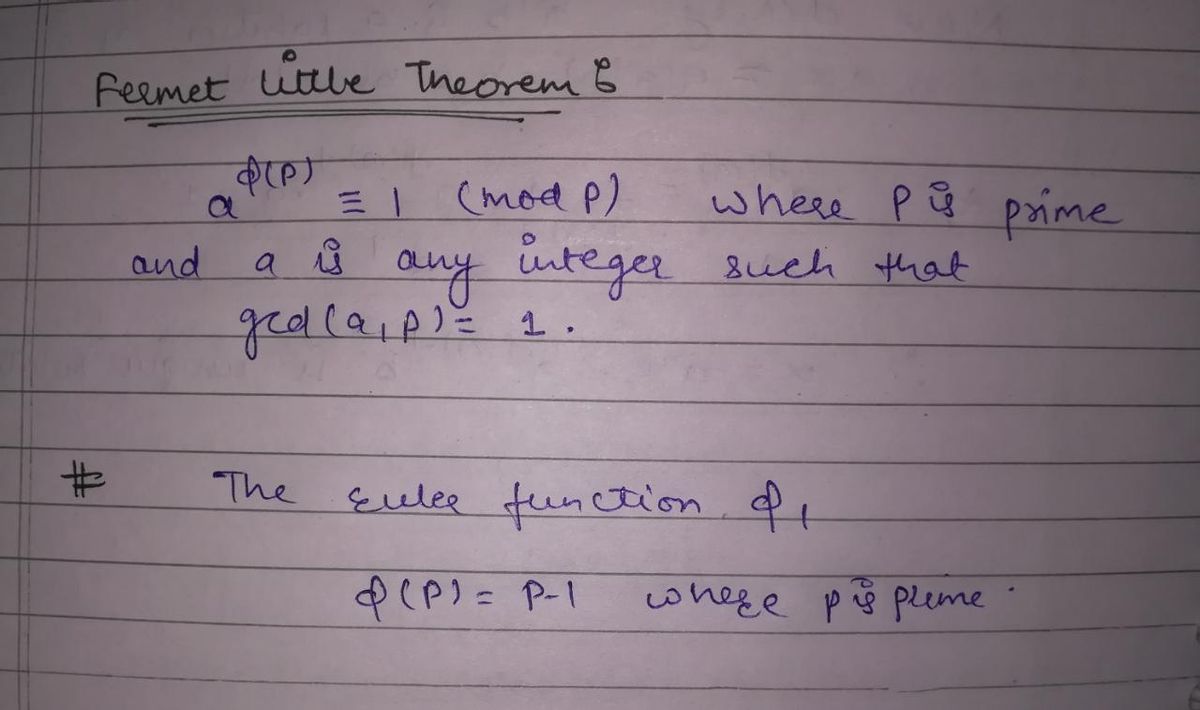 Fermet little Theorem :
a^ϕ(p) ≡ 1 (mod p) where p is prime
and a is any integer such that
gcd(a, p) = 1.
# The Euler function ϕ,
ϕ(p) = p-1 where p is prime.